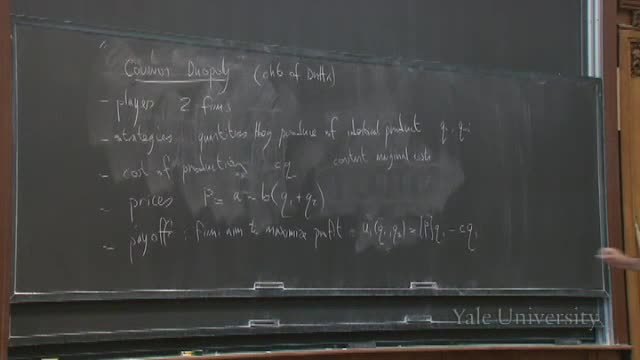 Cournot Duopoly (ch 6 of Dutta)
- players 2 firms
- strategies quantities they produce of identical product qi, q-i
- cost of production cq constant marginal costs
- prices p = a - b(q1 + q2)
- payoffs : firms aim to maximize profit = u1(q1, q2) = [p]q1 - cq1
Yale University